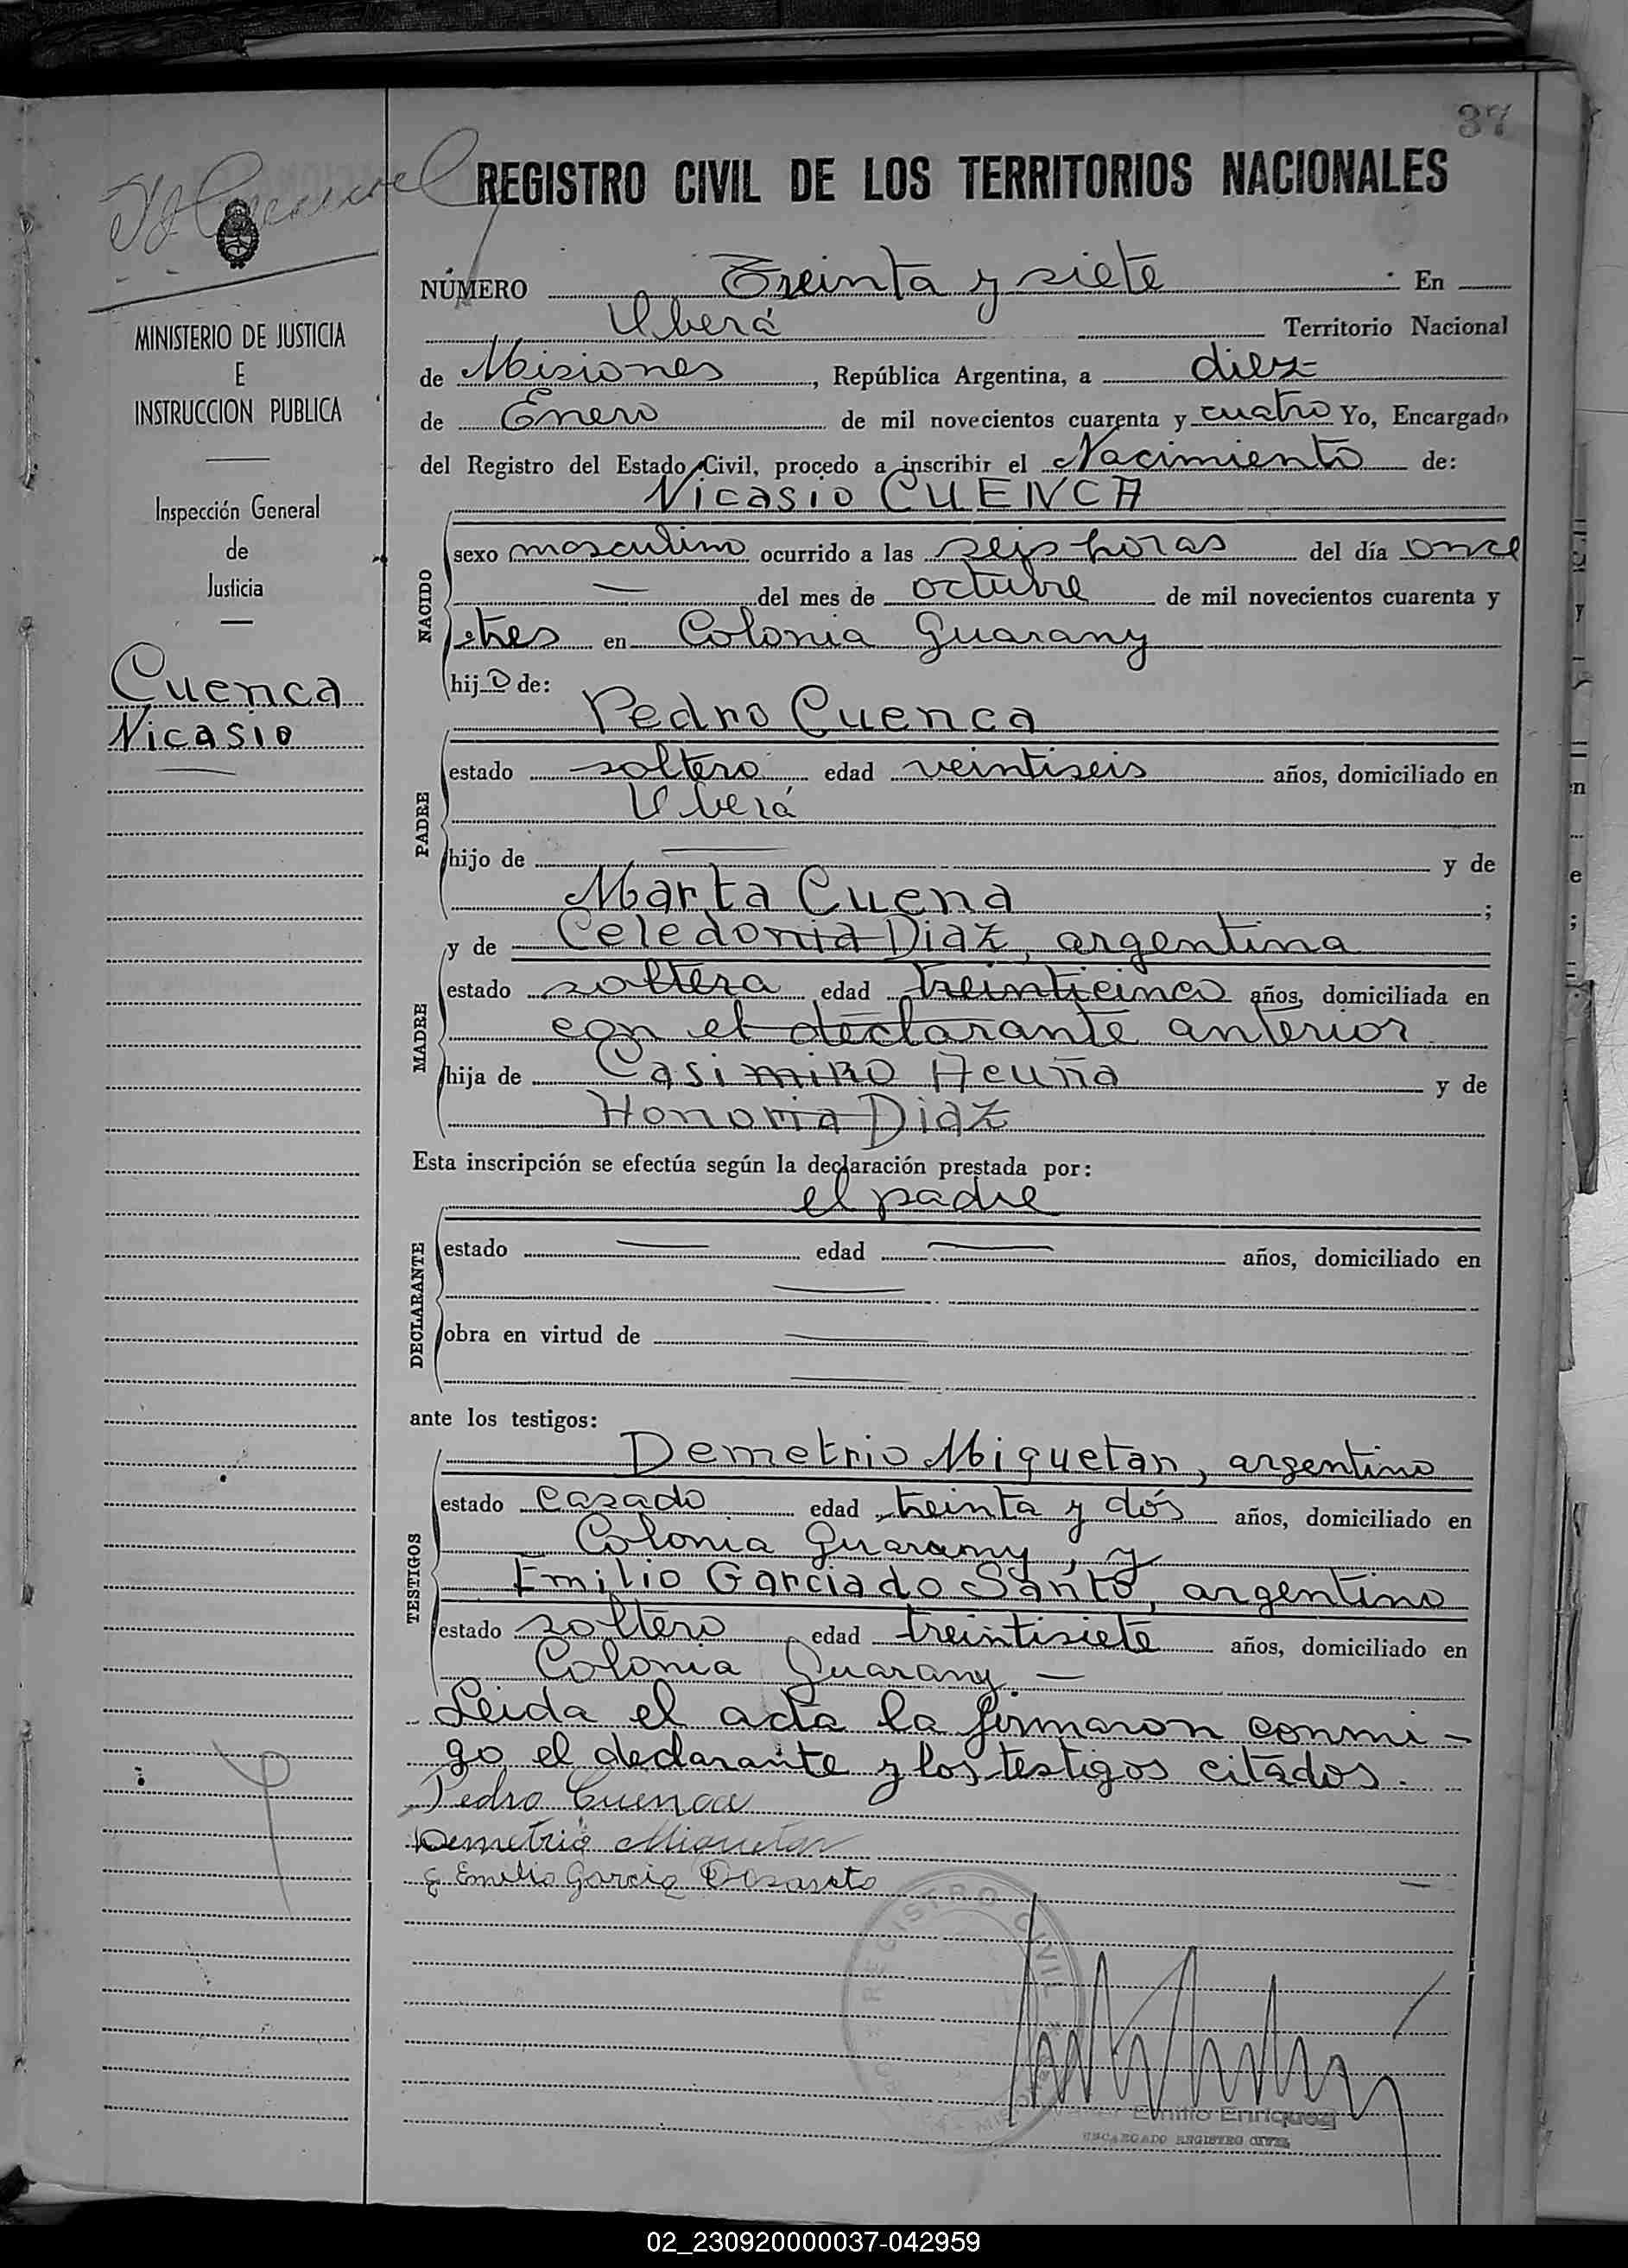 37
REGISTRO CIVIL DE LOS TERRITORIOS NACIONALES
MINISTERIO DE JUSTICIA
E
INSTRUCCION PUBLICA
Inspección General
de
Justicia
Cuenca
Nicasio
NÚMERO Treinta y siete En
Uberá Territorio Nacional
de Misiones, República Argentina, a diez
de Enero de mil novecientos cuarenta y cuatro Yo, Encargado
del Registro del Estado Civil, procedo a inscribir el Nacimiento de:
Nicasio CUENCA
NACIDO
sexo masculino ocurrido a las seis horas del día once
— del mes de octubre de mil novecientos cuarenta y
tres en Colonia Guarany
hijo de:
Pedro Cuenca
PADRE
estado soltero edad veintiseis años, domiciliado en
Uberá
hijo de — y de
Marta Cuena;
y de Celedonia Diaz, argentina
MADRE
estado soltera edad treinticinco años, domiciliada en
con el declarante anterior
hija de Casimiro Acuña y de
Honoria Diaz
Esta inscripción se efectúa según la declaración prestada por:
el padre
DECLARANTE
estado — edad — años, domiciliado en
—
obra en virtud de —
—
ante los testigos:
Demetrio Miquetan, argentino
TESTIGOS
estado casado edad treinta y dós años, domiciliado en
Colonia Guarany, y
Emilio Garcia do Santo, argentino
estado soltero edad treintisiete años, domiciliado en
Colonia Guarany —
Leida el acta la firmaron conmi-
go el declarante y los testigos citados.
Pedro Cuenca
Demetrio Miquetan
Emilio Garcia
REGISTRO CIVIL
Emilio Enriquez
ENCARGADO REGISTRO CIVIL
02_230920000037-042959